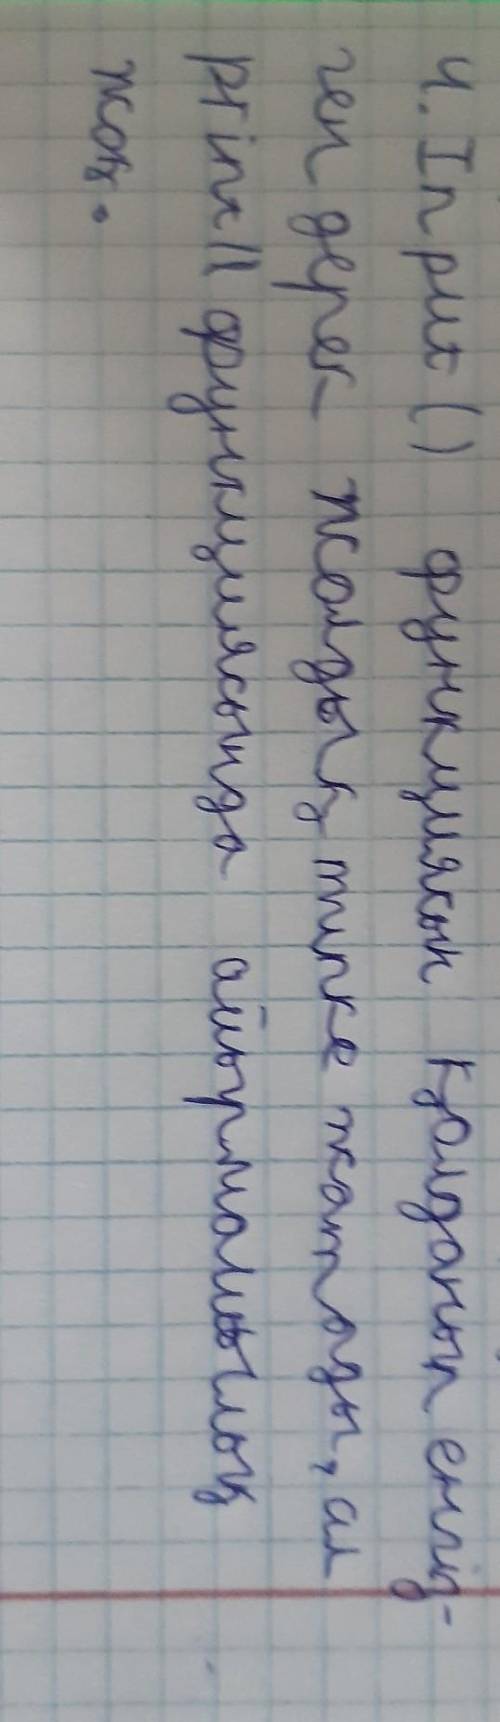 4. Input () функциясын қолданып енгіз-
ген дерек жолдық типке жатады, ал
print() функциясында айырмашылық
жоқ.